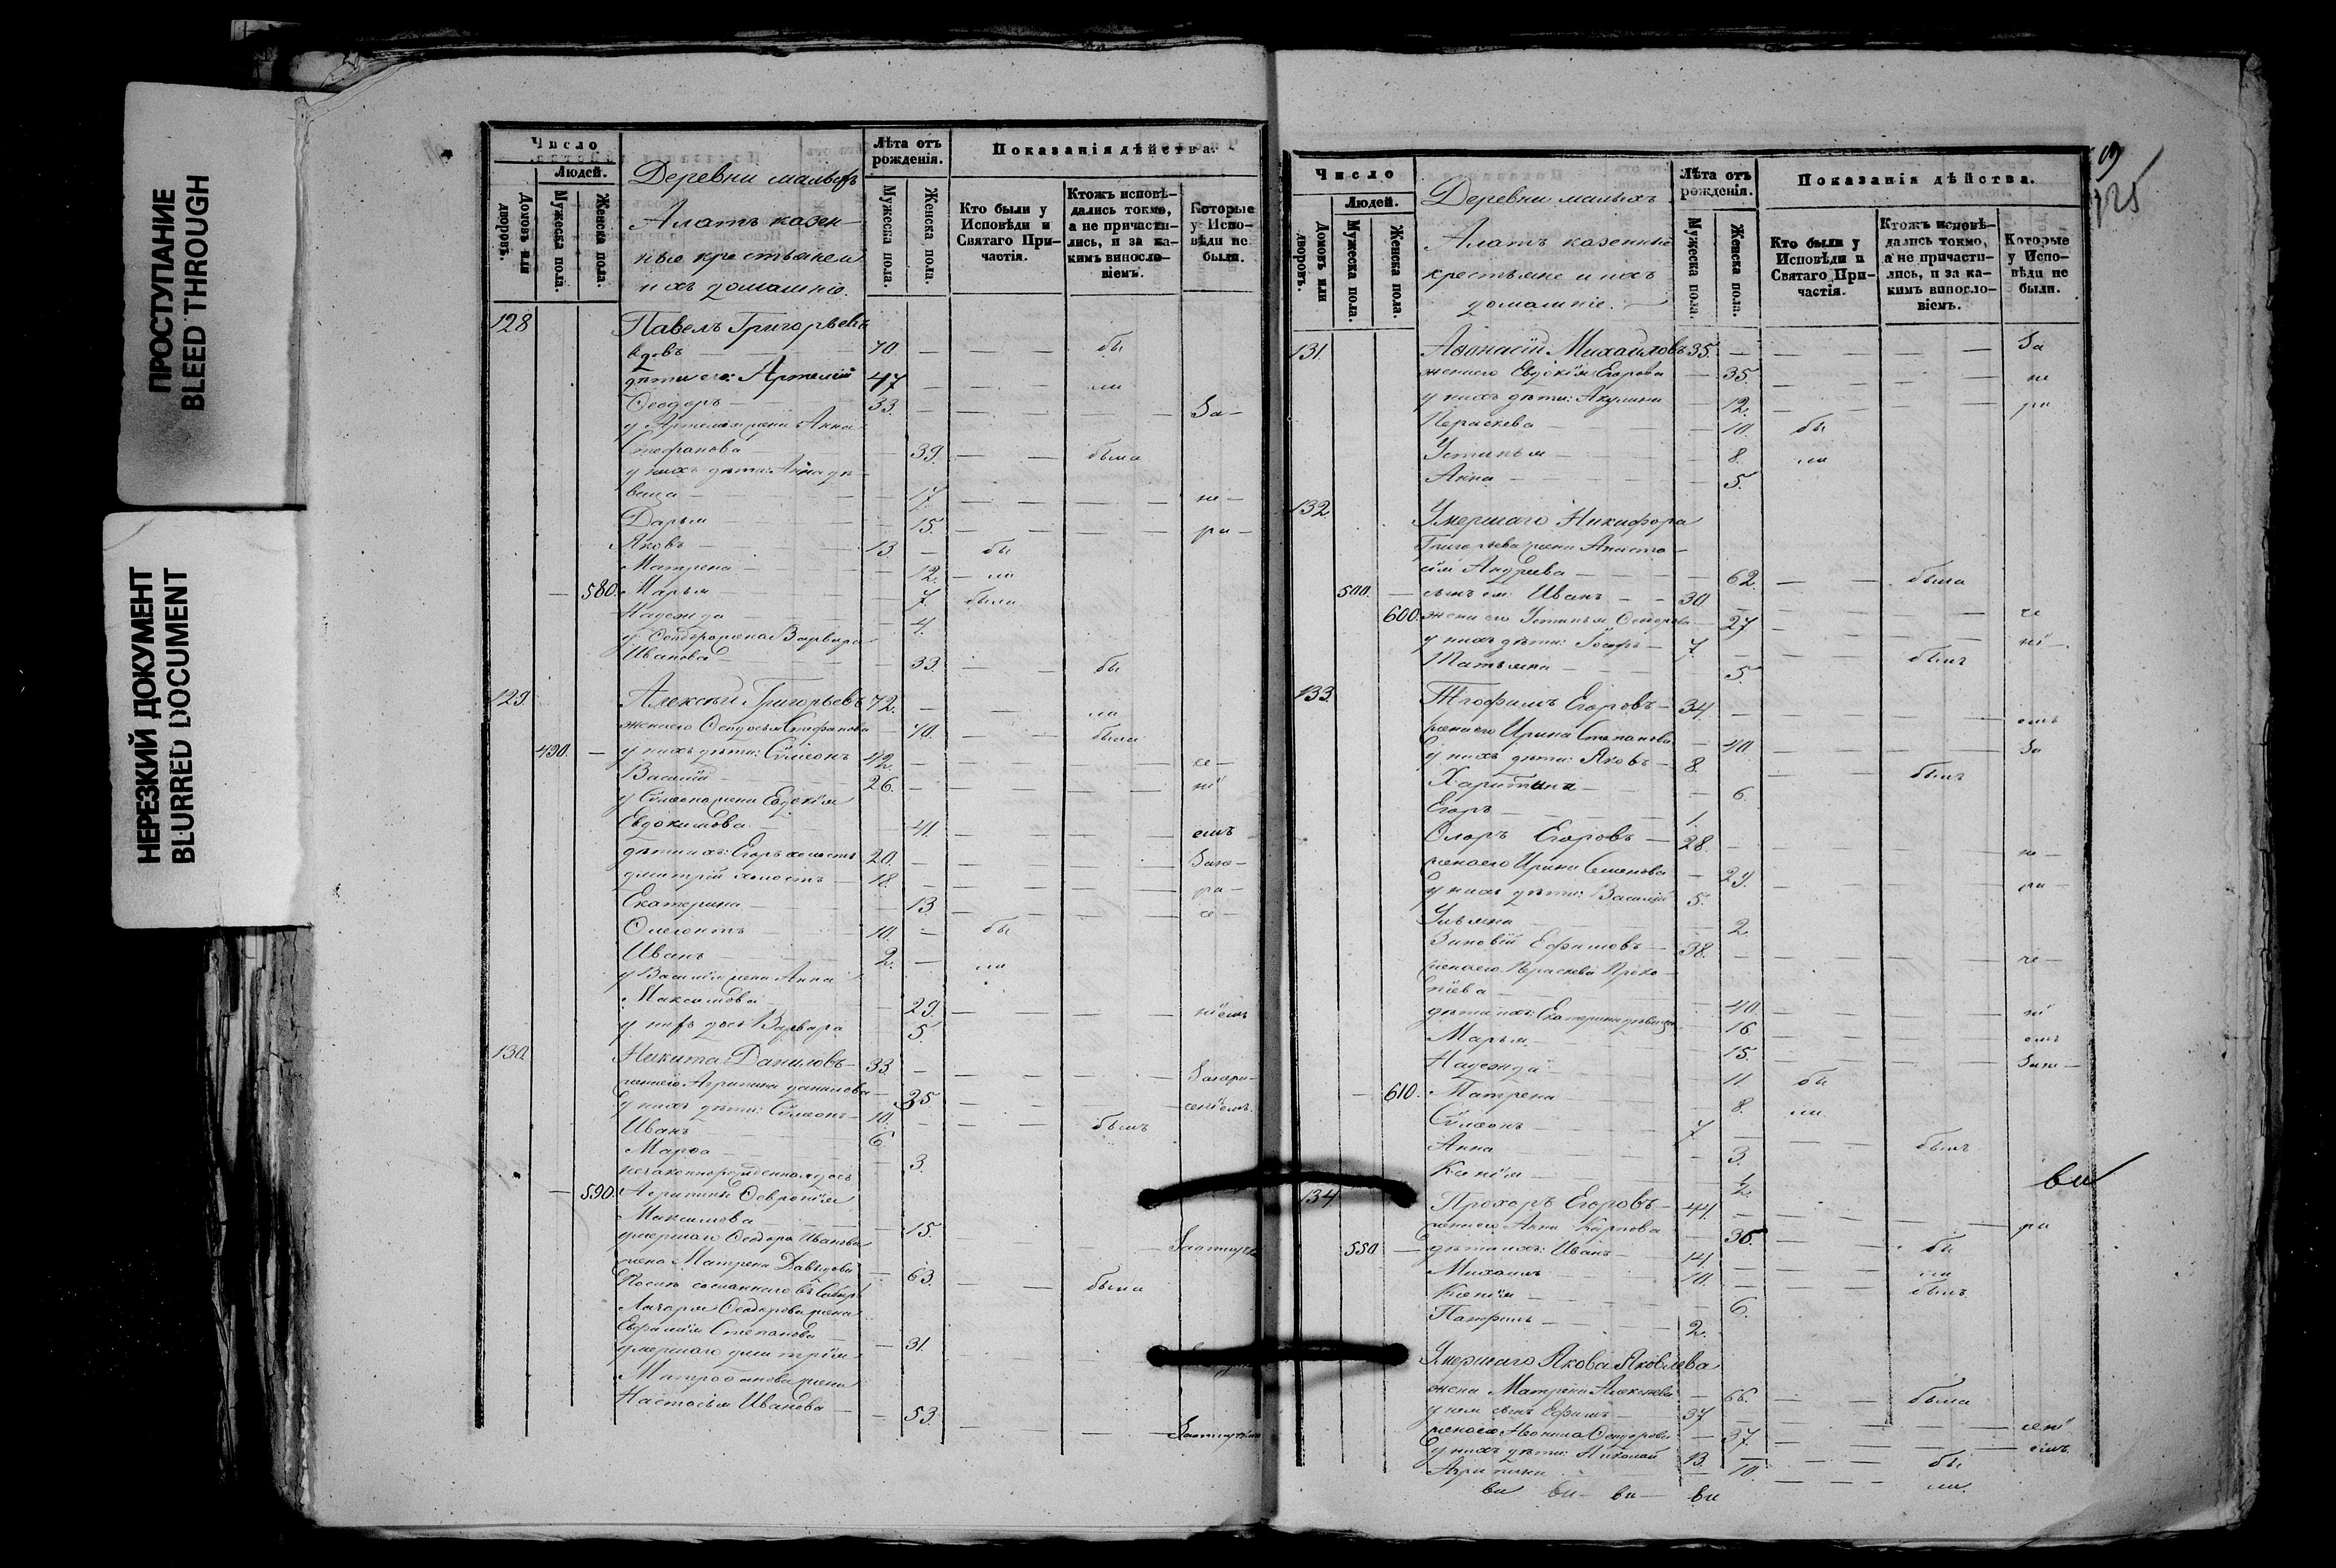 ПРОСТУПАНИЕ
BLEED THROUGH
НЕРЕЗКИЙ ДОКУМЕНТ
BLURRED DOCUMENT
Число
Людей.
Домовъ или дворовъ.
Мужеска пола.
Женска пола.
Деревни малыхъ
Алатъ казен-
ные крестьяне и
ихъ домашніе.
Лѣта отъ рожденія.
Мужеска пола.
Женска пола.
Показанія дѣйства.
Кто были у Исповѣди и Святаго Причастія.
Ктожъ исповѣдались токмо, а не причастились, и за какимъ винословіемъ.
Которые у Исповѣди не были.
128 Павелъ Григорьевъ
вдовъ 70. бы
дѣти его: Артемій 47 ли
Ѳеодоръ 33. За-
у Артемія жена Анна
Стефанова 39. была
у нихъ дѣти: Анна дѣ-
вица 17. не-
Дарья 15. ра-
Яковъ 13. бы
Матрена 12. ли
580. Марья 7. были
Надежда 4.
у Ѳеодора жена Варвара
Иванова 33. бы
129. Алексѣй Григорьевъ 72. ли
жена его Ѳеодосья Стефанова 70. была
490. у нихъ дѣти: Сѵмеонъ 42.
Василій 26. ні
у Сѵмеона жена Евдокія
Евдокимова 41. емъ
дѣти ихъ: Егоръ холостъ 20.
Дмитрій холостъ 18. ра-
Екатерина 13.
10. бы
Иванъ 2. ли
у Василія жена Анна
Максимова 29. ніемъ
у нихъ дочь Варвара 5.
130. Никита Даниловъ 33.
жена его Агрипина Данилова 35.
у нихъ дѣти: Сѵмеонъ 10.
Иванъ 6. былъ
Марѳа 3.
незаконнорожденная дочь
590. Агрипины Ѳевронія
Максимова 15.
умершаго Ѳеодора Иванова
жена Матрена Давыдова 63. была
сосланнаго въ Сибирь
Ѳеодорова жена
Степанова 31.
умершаго Дмитрія
Митрофанова жена
Настасья Иванова 53.
125
Число
Людей.
Домовъ или дворовъ.
Мужеска пола.
Женска пола.
Деревни малыхъ
Алатъ казенные
крестьяне и ихъ
домашніе.
Лѣта отъ рожденія.
Мужеска пола.
Женска пола.
Показанія дѣйства.
Кто были у Исповѣди и Святаго Причастія.
Ктожъ исповѣдались токмо, а не причастились, и за какимъ винословіемъ.
Которые у Исповѣди не были.
131. Аѳонасій Михаиловъ 35. За
жена его Евдокія Егорова 35. не
у нихъ дѣти: Акулина 12. ра
Параскева 10. бы
Устинья 8. ли
Анна 5.
132. Умершаго Никифора
Григорьева жена Анаста-
сія Андреева 62. была
500. сынъ ея Иванъ 30
600. жена его Устинья Ѳеодорова 27
у нихъ дѣти: 7. ні
Татьяна 5. былъ
133. Трофимъ Егоровъ 34. емъ
жена его Ирина Степанова 40 За
у нихъ дѣти: Яковъ 8. былъ
Харитина 6.
Егоръ 1.
Флоръ Егоровъ 28. не-
жена его Ирина Семенова 29. ра-
у нихъ дѣти: Василій 5.
Ульяна 2.
Зиновій Ефимовъ 38.
жена его Параскева Проко-
піева 40. ні
дѣти ихъ: Екатерина дѣвица 16
Марья 15. емъ
Надежда 11 бы
610. Матрена 8. ли
Сѵмеонъ 7
Анна 3. былъ
Ксенія 2.
134 Прохоръ Егоровъ 44.
жена его Анна Карпова 36. ра
550 дѣти ихъ: Иванъ 14. бы
Михаилъ 10. ли
Ксенія 6. былъ
Памфилъ 2.
Умершаго Якова Яковлева
жена Матрена Алексѣева 66. была
у нея сынъ Ефимъ 37
жена его Ѳеодорова 37.
у нихъ дѣти: Николай 13. бы
Агрипина 10 ли
ви ви- ви- ви
ви